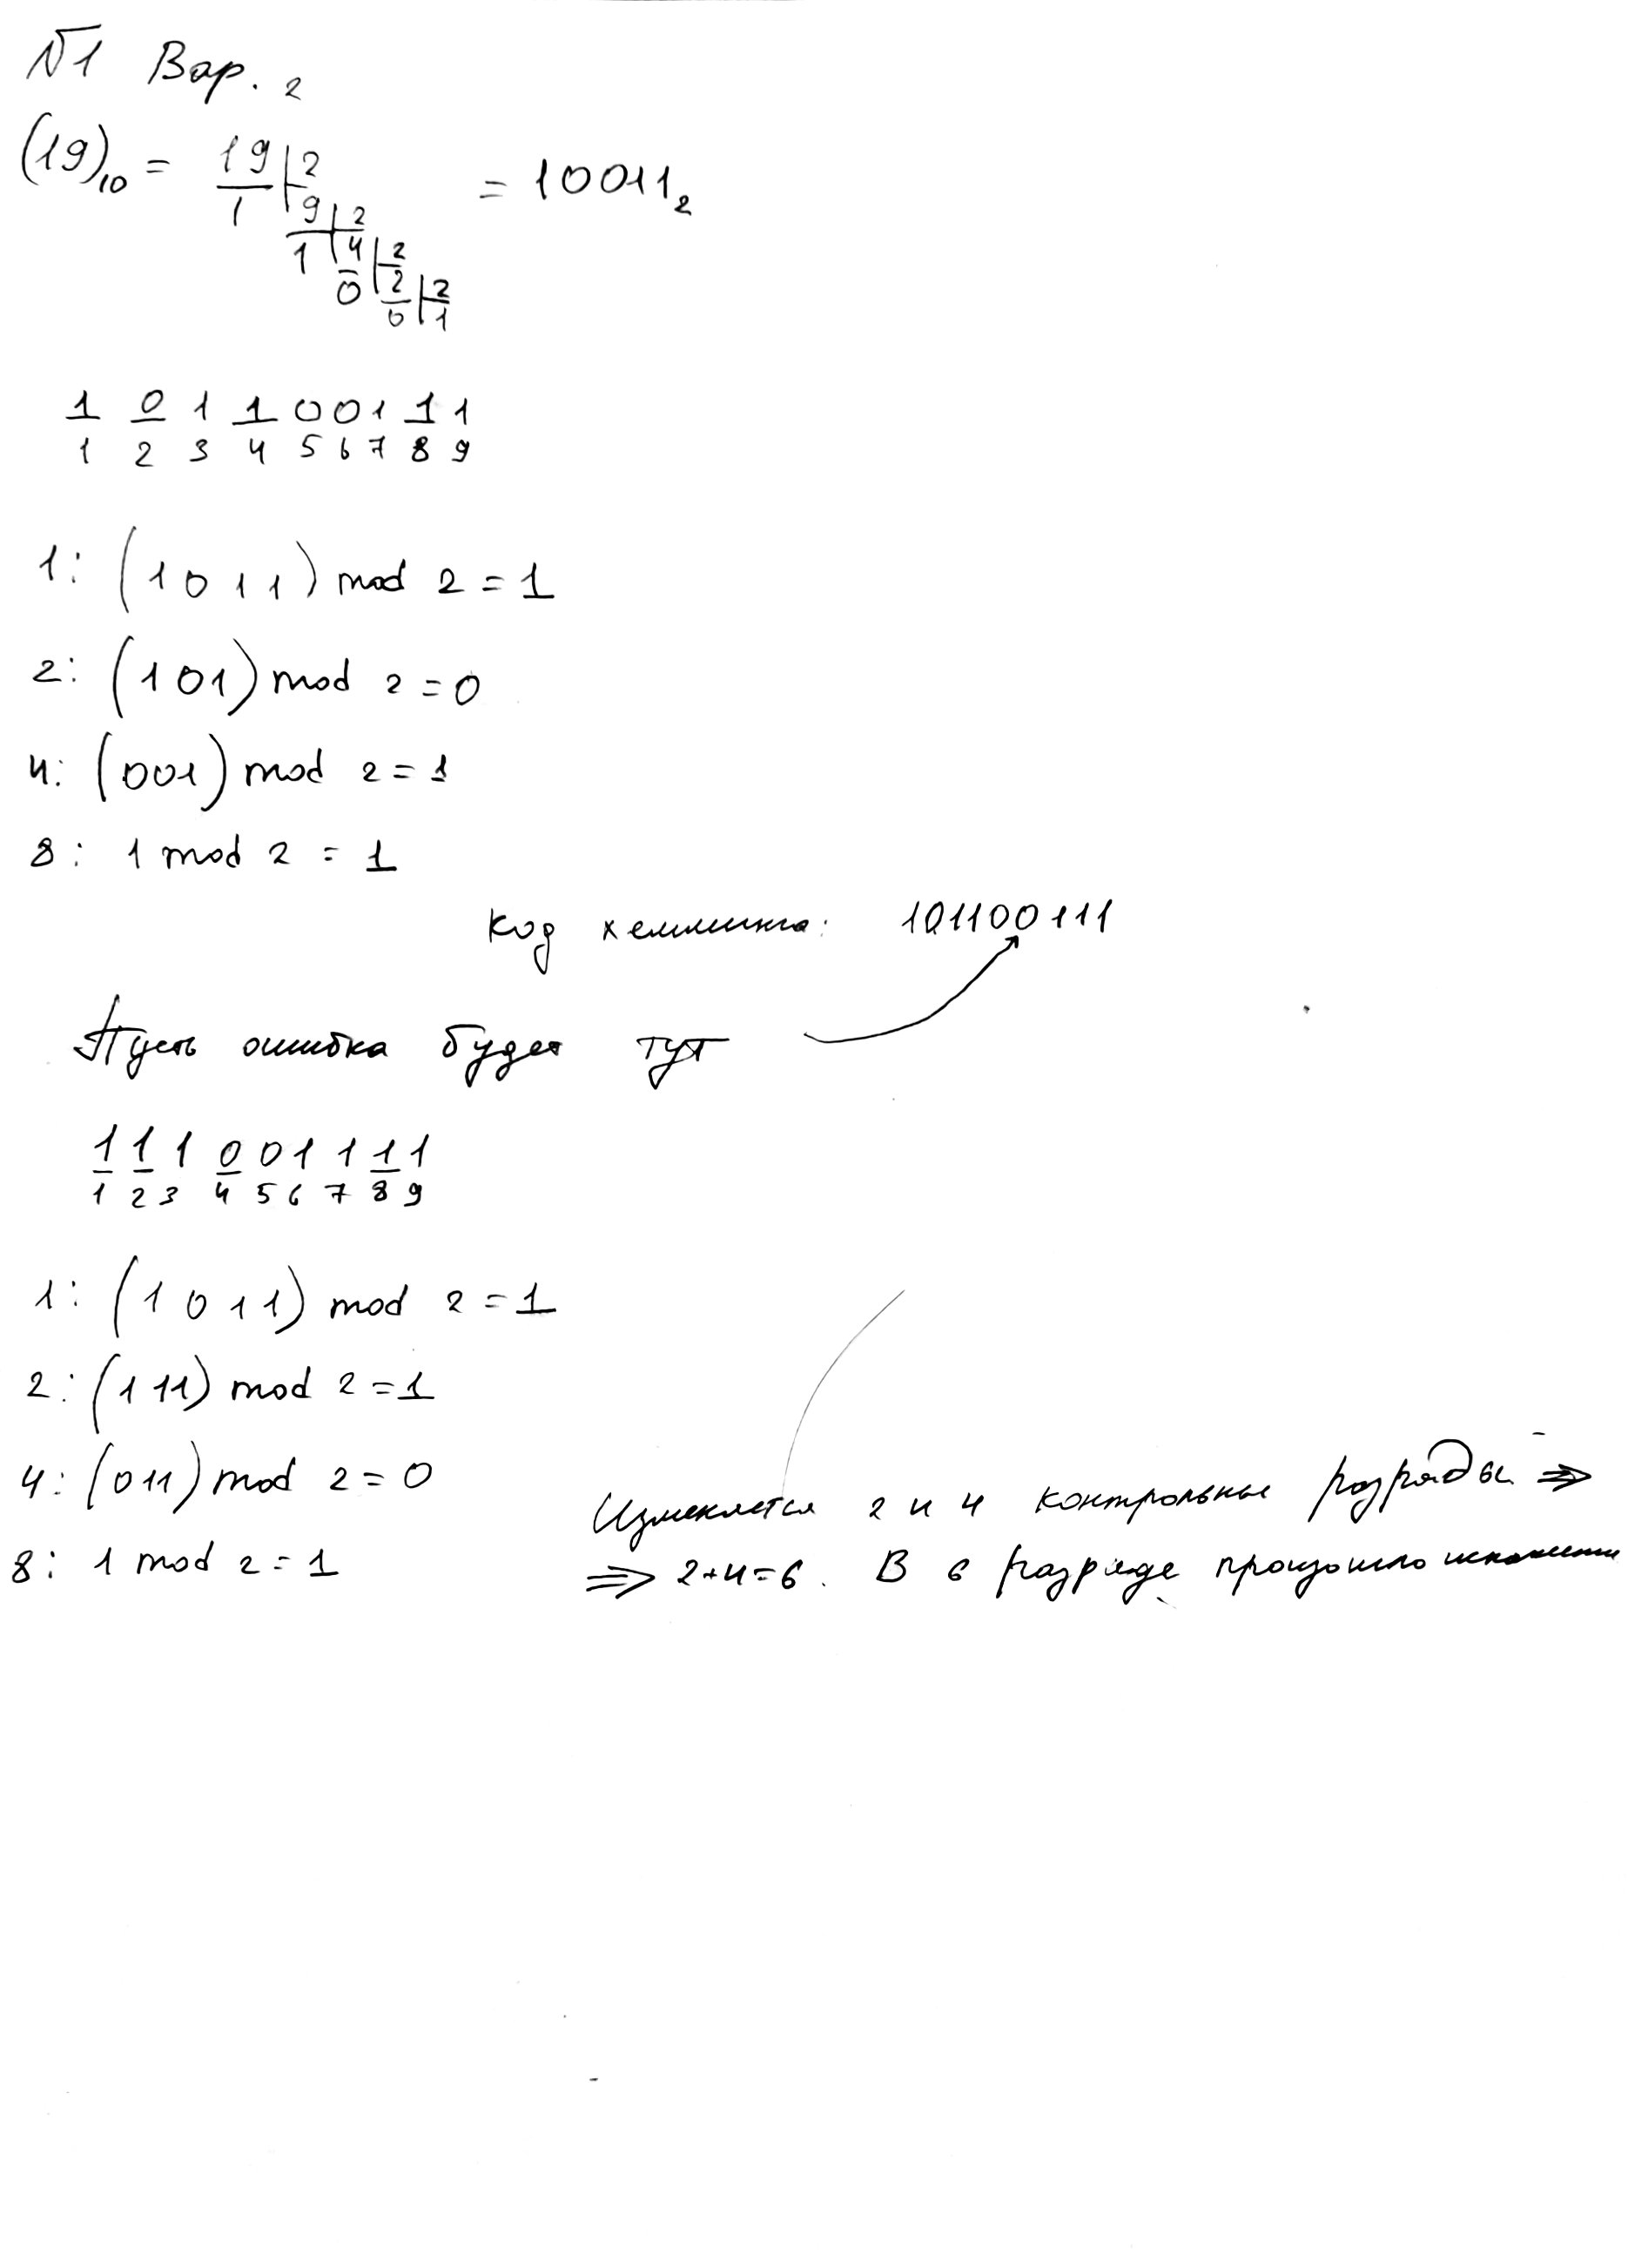 №1 Вар. 2
(19)₁₀ = 19 | 2 = 10011₂
1 9 | 2
1 4 | 2
0 2 | 2
0 1
1 0 1 1 0 0 1 1 1
1 2 3 4 5 6 7 8 9
1: (1 0 1 1) mod 2 = 1
2: (1 0 1) mod 2 = 0
4: (001) mod 2 = 1
8: 1 mod 2 = 1
Код хемминга: 101100111
Пусть ошибка будет тут
1 1 1 0 0 1 1 1 1
1 2 3 4 5 6 7 8 9
1: (1 0 1 1) mod 2 = 1
2: (1 1 1) mod 2 = 1
4: (0 1 1) mod 2 = 0
8: 1 mod 2 = 1
Изменяется 2 и 4 контрольные разряды ⇒
⇒ 2+4=6. В 6 разряде произошло